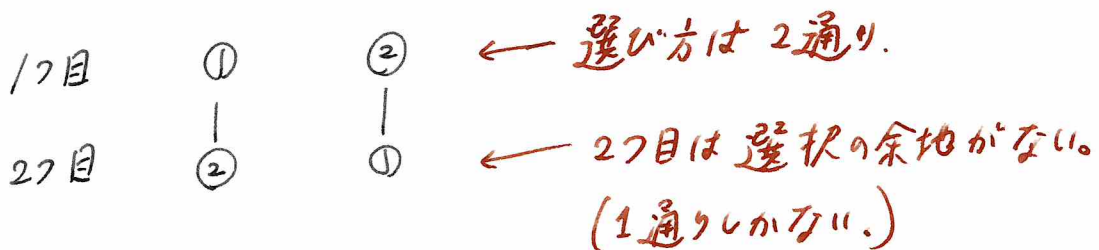 1つ目 ① ② ← 選び方は 2通り.
2つ目 ② ① ← 2つ目は選択の余地がない。
(1通りしかない.)